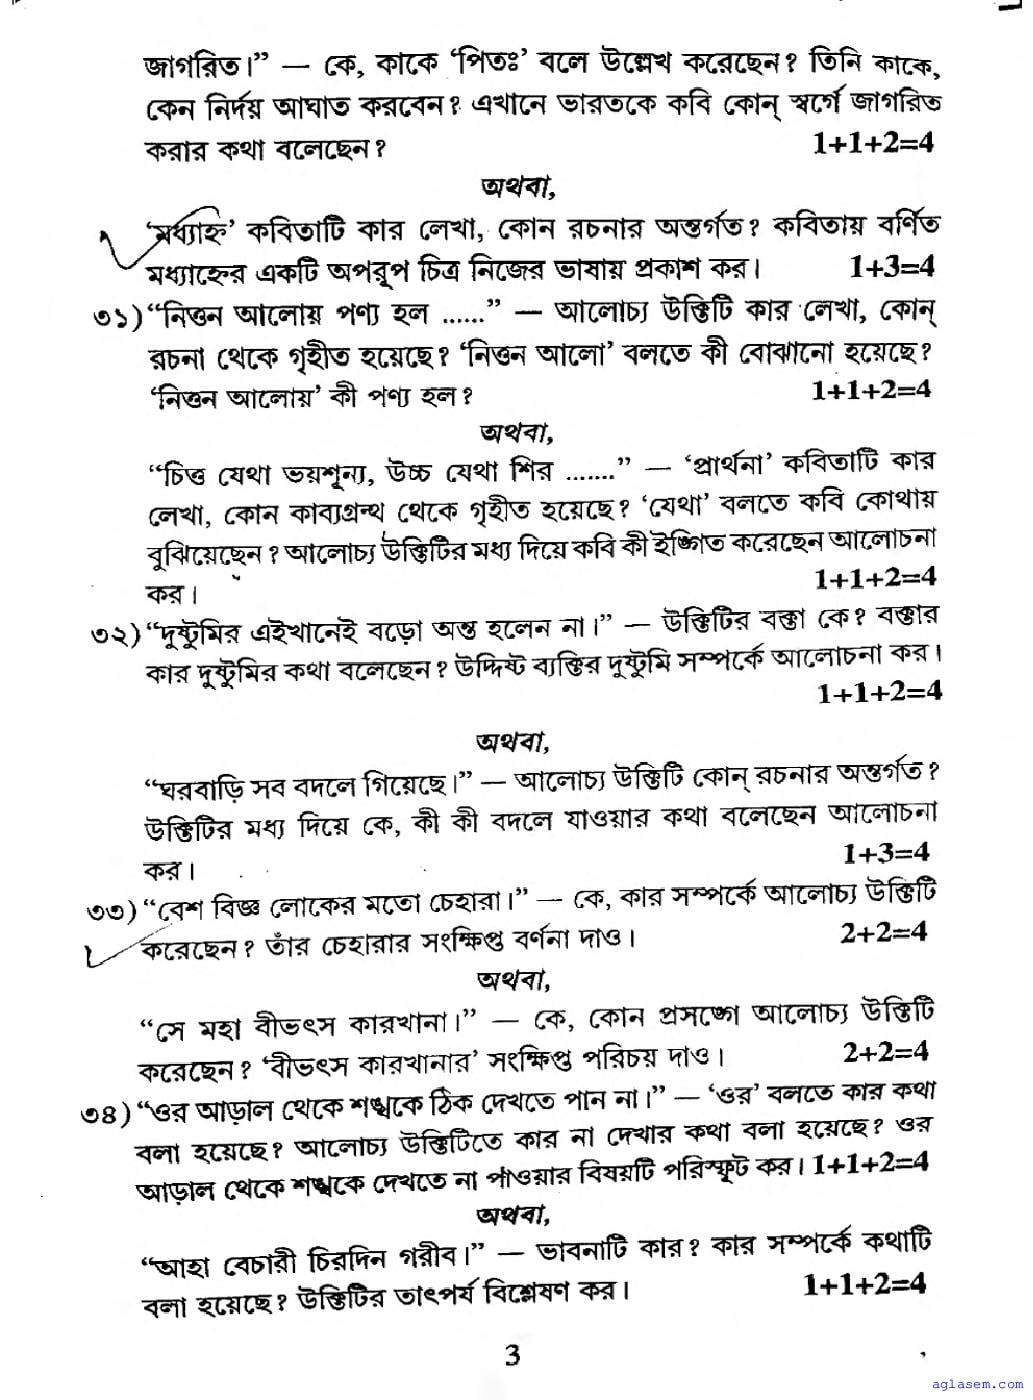 জাগরিত।” — কে, কাকে ‘পিতঃ’ বলে উল্লেখ করেছেন? তিনি কাকে,
কেন নির্দয় আঘাত করবেন? এখানে ভারতকে কবি কোন্ স্বর্গে জাগরিত
করার কথা বলেছেন? 1+1+2=4
অথবা,
‘মধ্যাহ্ন’ কবিতাটি কার লেখা, কোন রচনার অন্তর্গত? কবিতায় বর্ণিত
মধ্যাহ্নের একটি অপরূপ চিত্র নিজের ভাষায় প্রকাশ কর। 1+3=4
৩১) “নিত্তন আলোয় পণ্য হল ......” — আলোচ্য উক্তিটি কার লেখা, কোন্
রচনা থেকে গৃহীত হয়েছে? ‘নিত্তন আলো’ বলতে কী বোঝানো হয়েছে?
‘নিত্তন আলোয়’ কী পণ্য হল? 1+1+2=4
অথবা,
“চিত্ত যেথা ভয়শূন্য, উচ্চ যেথা শির .......” — ‘প্রার্থনা’ কবিতাটি কার
লেখা, কোন কাব্যগ্রন্থ থেকে গৃহীত হয়েছে? ‘যেথা’ বলতে কবি কোথায়
বুঝিয়েছেন? আলোচ্য উক্তিটির মধ্য দিয়ে কবি কী ইঙ্গিত করেছেন আলোচনা
কর। 1+1+2=4
৩২) “দুষ্টুমির এইখানেই বড়ো অন্ত হলেন না।” — উক্তিটির বক্তা কে? বক্তার
কার দুষ্টুমির কথা বলেছেন? উদ্দিষ্ট ব্যক্তির দুষ্টুমি সম্পর্কে আলোচনা কর।
1+1+2=4
অথবা,
“ঘরবাড়ি সব বদলে গিয়েছে।” — আলোচ্য উক্তিটি কোন্ রচনার অন্তর্গত?
উক্তিটির মধ্য দিয়ে কে, কী কী বদলে যাওয়ার কথা বলেছেন আলোচনা
কর। 1+3=4
৩৩) “বেশ বিজ্ঞ লোকের মতো চেহারা।” — কে, কার সম্পর্কে আলোচ্য উক্তিটি
করেছেন? তাঁর চেহারার সংক্ষিপ্ত বর্ণনা দাও। 2+2=4
অথবা,
“সে মহা বীভৎস কারখানা।” — কে, কোন প্রসঙ্গে আলোচ্য উক্তিটি
করেছেন? ‘বীভৎস কারখানার’ সংক্ষিপ্ত পরিচয় দাও। 2+2=4
৩৪) “ওর আড়াল থেকে শঙ্খকে ঠিক দেখতে পান না।” — ‘ওর’ বলতে কার কথা
বলা হয়েছে? আলোচ্য উক্তিটিতে কার না দেখার কথা বলা হয়েছে? ওর
আড়াল থেকে শঙ্খকে দেখতে না পাওয়ার বিষয়টি পরিস্ফূট কর। 1+1+2=4
অথবা,
“আহা বেচারী চিরদিন গরীব।” — ভাবনাটি কার? কার সম্পর্কে কথাটি
বলা হয়েছে? উক্তিটির তাৎপর্য বিশ্লেষণ কর। 1+1+2=4
3
aglasem.com